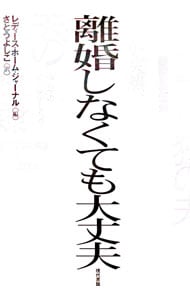 離婚しなくても大丈夫
レディース・ホーム・ジャーナル[編]
さとうよしこ[訳]
現代書館